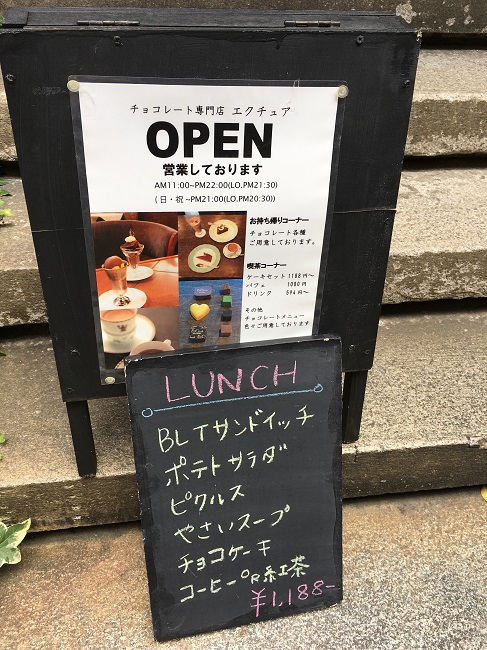 チョコレート専門店 エクチュア
OPEN
営業しております
AM11:00~PM22:00(LO.PM21:30)
(日・祝~PM21:00(LO.PM20:30))
お持ち帰りコーナー
チョコレート各種
ご用意しております。
喫茶コーナー
ケーキセット 1188円~
パフェ 1080円
ドリンク 594円~
その他
チョコレートメニュー
色々ご用意しております
LUNCH
BLTサンドイッチ
ポテトサラダ
ピクルス
やさいスープ
チョコケーキ
コーヒーOR紅茶
¥1,188-